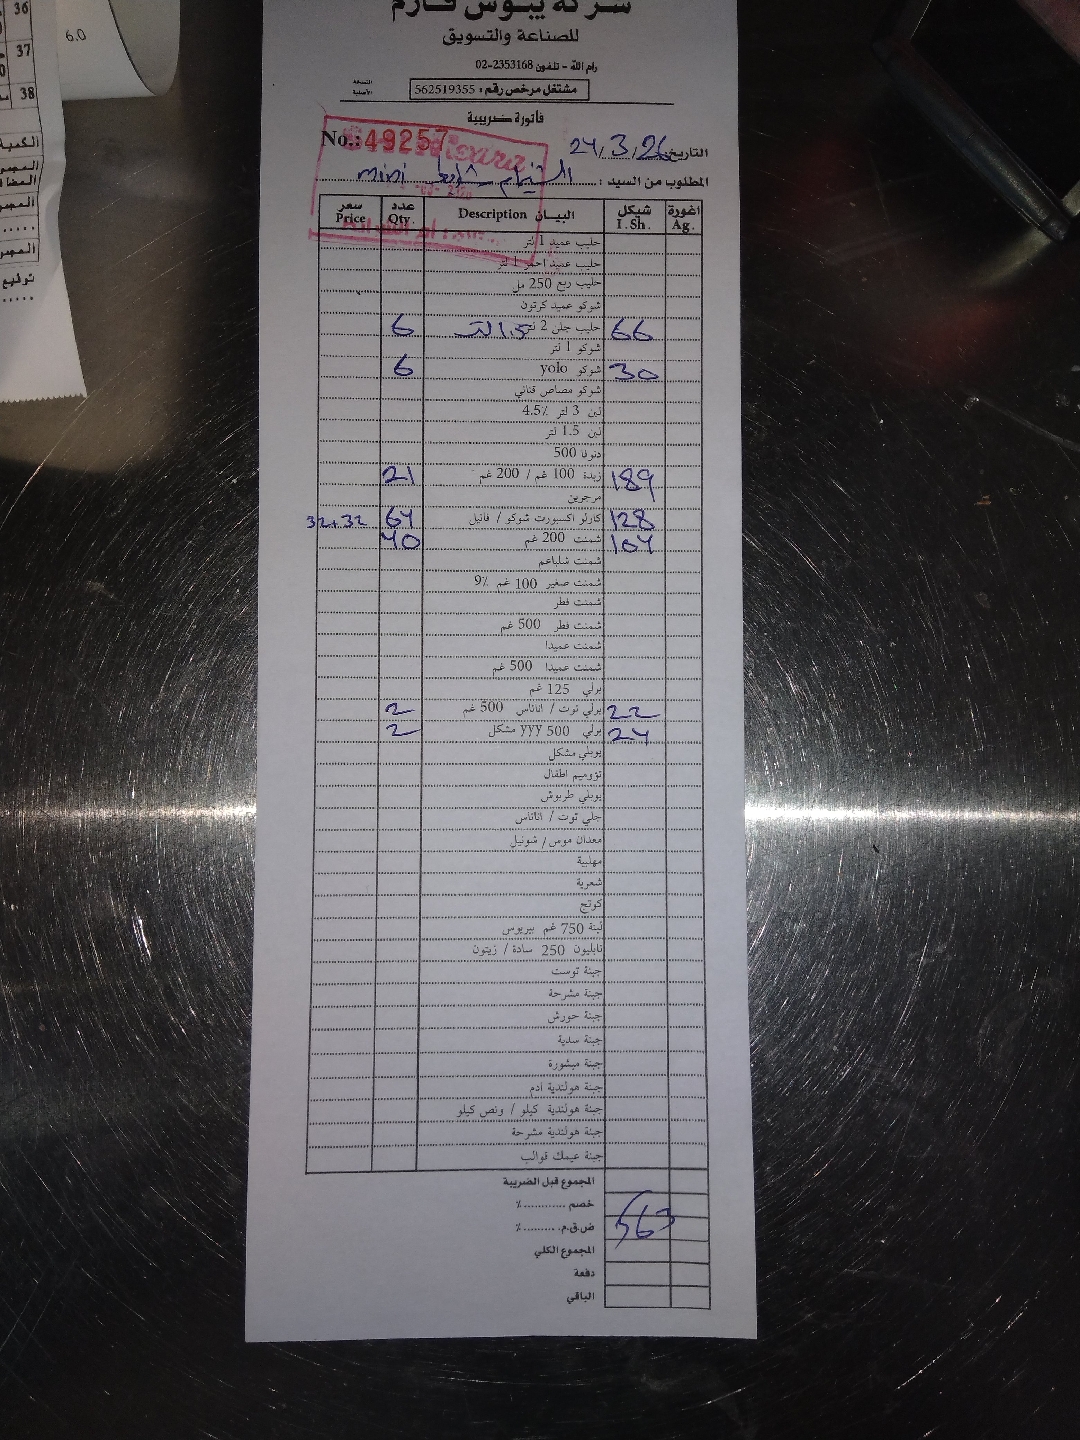 شركة يبوس فارم
للصناعة والتسويق
رام الله - تلفون 2353168-02
مشتغل مرخص رقم: 562519355
النسخة الأصلية
فاتورة ضريبية
No.: 49257
التاريخ 24/3/26
المطلوب من السيد : mini
سعر Price عدد Qty. البيـــان Description شيكل I.Sh. اغورة Ag.
حليب عميد 1 لتر
حليب عميد احمر 1 لتر
حليب ربع 250 مل
شوكو عميد كرتون
6 حليب جلن 2 لتر 1.5 لتر 66
شوكو 1 لتر
6 شوكو yolo 30
شوكو مصاص قناني
لبن 3 لتر 4.5٪
لبن 1.5 لتر
دنونا 500
21 زبدة 100 غم / 200 غم 189
مرجرين
32+32 64 كارلو اكسبورت شوكو / فانيل 128
40 شمنت 200 غم 104
شمنت شلباعم
شمنت صغير 100 غم 9٪
شمنت فطر
شمنت فطر 500 غم
شمنت عميدا
شمنت عميدا 500 غم
برلي 125 غم
2 برلي توت / اناناس 500 غم 22
2 برلي 500 yyy مشكل 24
يوبلي مشكل
تؤوميم اطفال
يوبلي طربوش
جلي توت / اناناس
معدان موس / شونيل
مهلبية
شعرية
كوتج
لبنة 750 غم بيريوس
نابليون 250 سادة / زيتون
جبنة توست
جبنة مشرحة
جبنة حورش
جبنة سدية
جبنة مبشورة
جبنة هولندية ادم
جبنة هولندية كيلو / ونص كيلو
جبنة هولندية مشرحة
جبنة عيمك قوالب
المجموع قبل الضريبة
خصم ............ ٪
ض.ق.م. .......... ٪ 563
المجموع الكلي
دفعة
الباقي
6.0
36
37
38